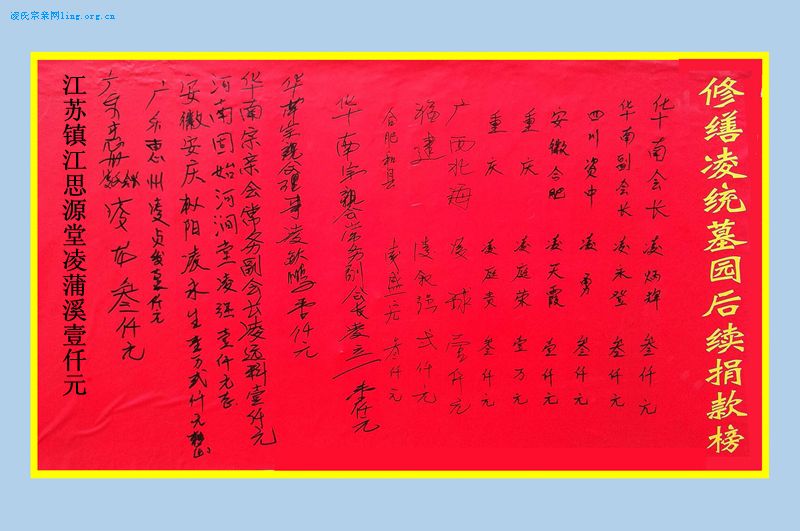 凌氏宗亲网ling.org.cn
修缮凌统墓园后续捐款榜
华南会长 凌炳辉 叁仟元
华南副会长 凌永登 叁仟元
四川资中 凌勇 叁仟元
安徽合肥 凌天霞 壹仟元
重庆 凌庭荣 壹万元
重庆 凌庭贵 叁仟元
广西北海 凌 壹仟元
福建 凌叙强 弍仟元
合肥和县 仟元
华南宗亲会常务副会长凌立一 仟元
华南宗亲会理事凌钦鹏 壹仟元
华南宗亲会常务副会长凌远料壹仟元
河南固始河涧堂凌强壹仟元
安徽安庆枞阳凌永生壹万弍仟元
广东惠州凌贞 壹仟元
广东 凌 叁仟元
江苏镇江思源堂凌蒲溪壹仟元